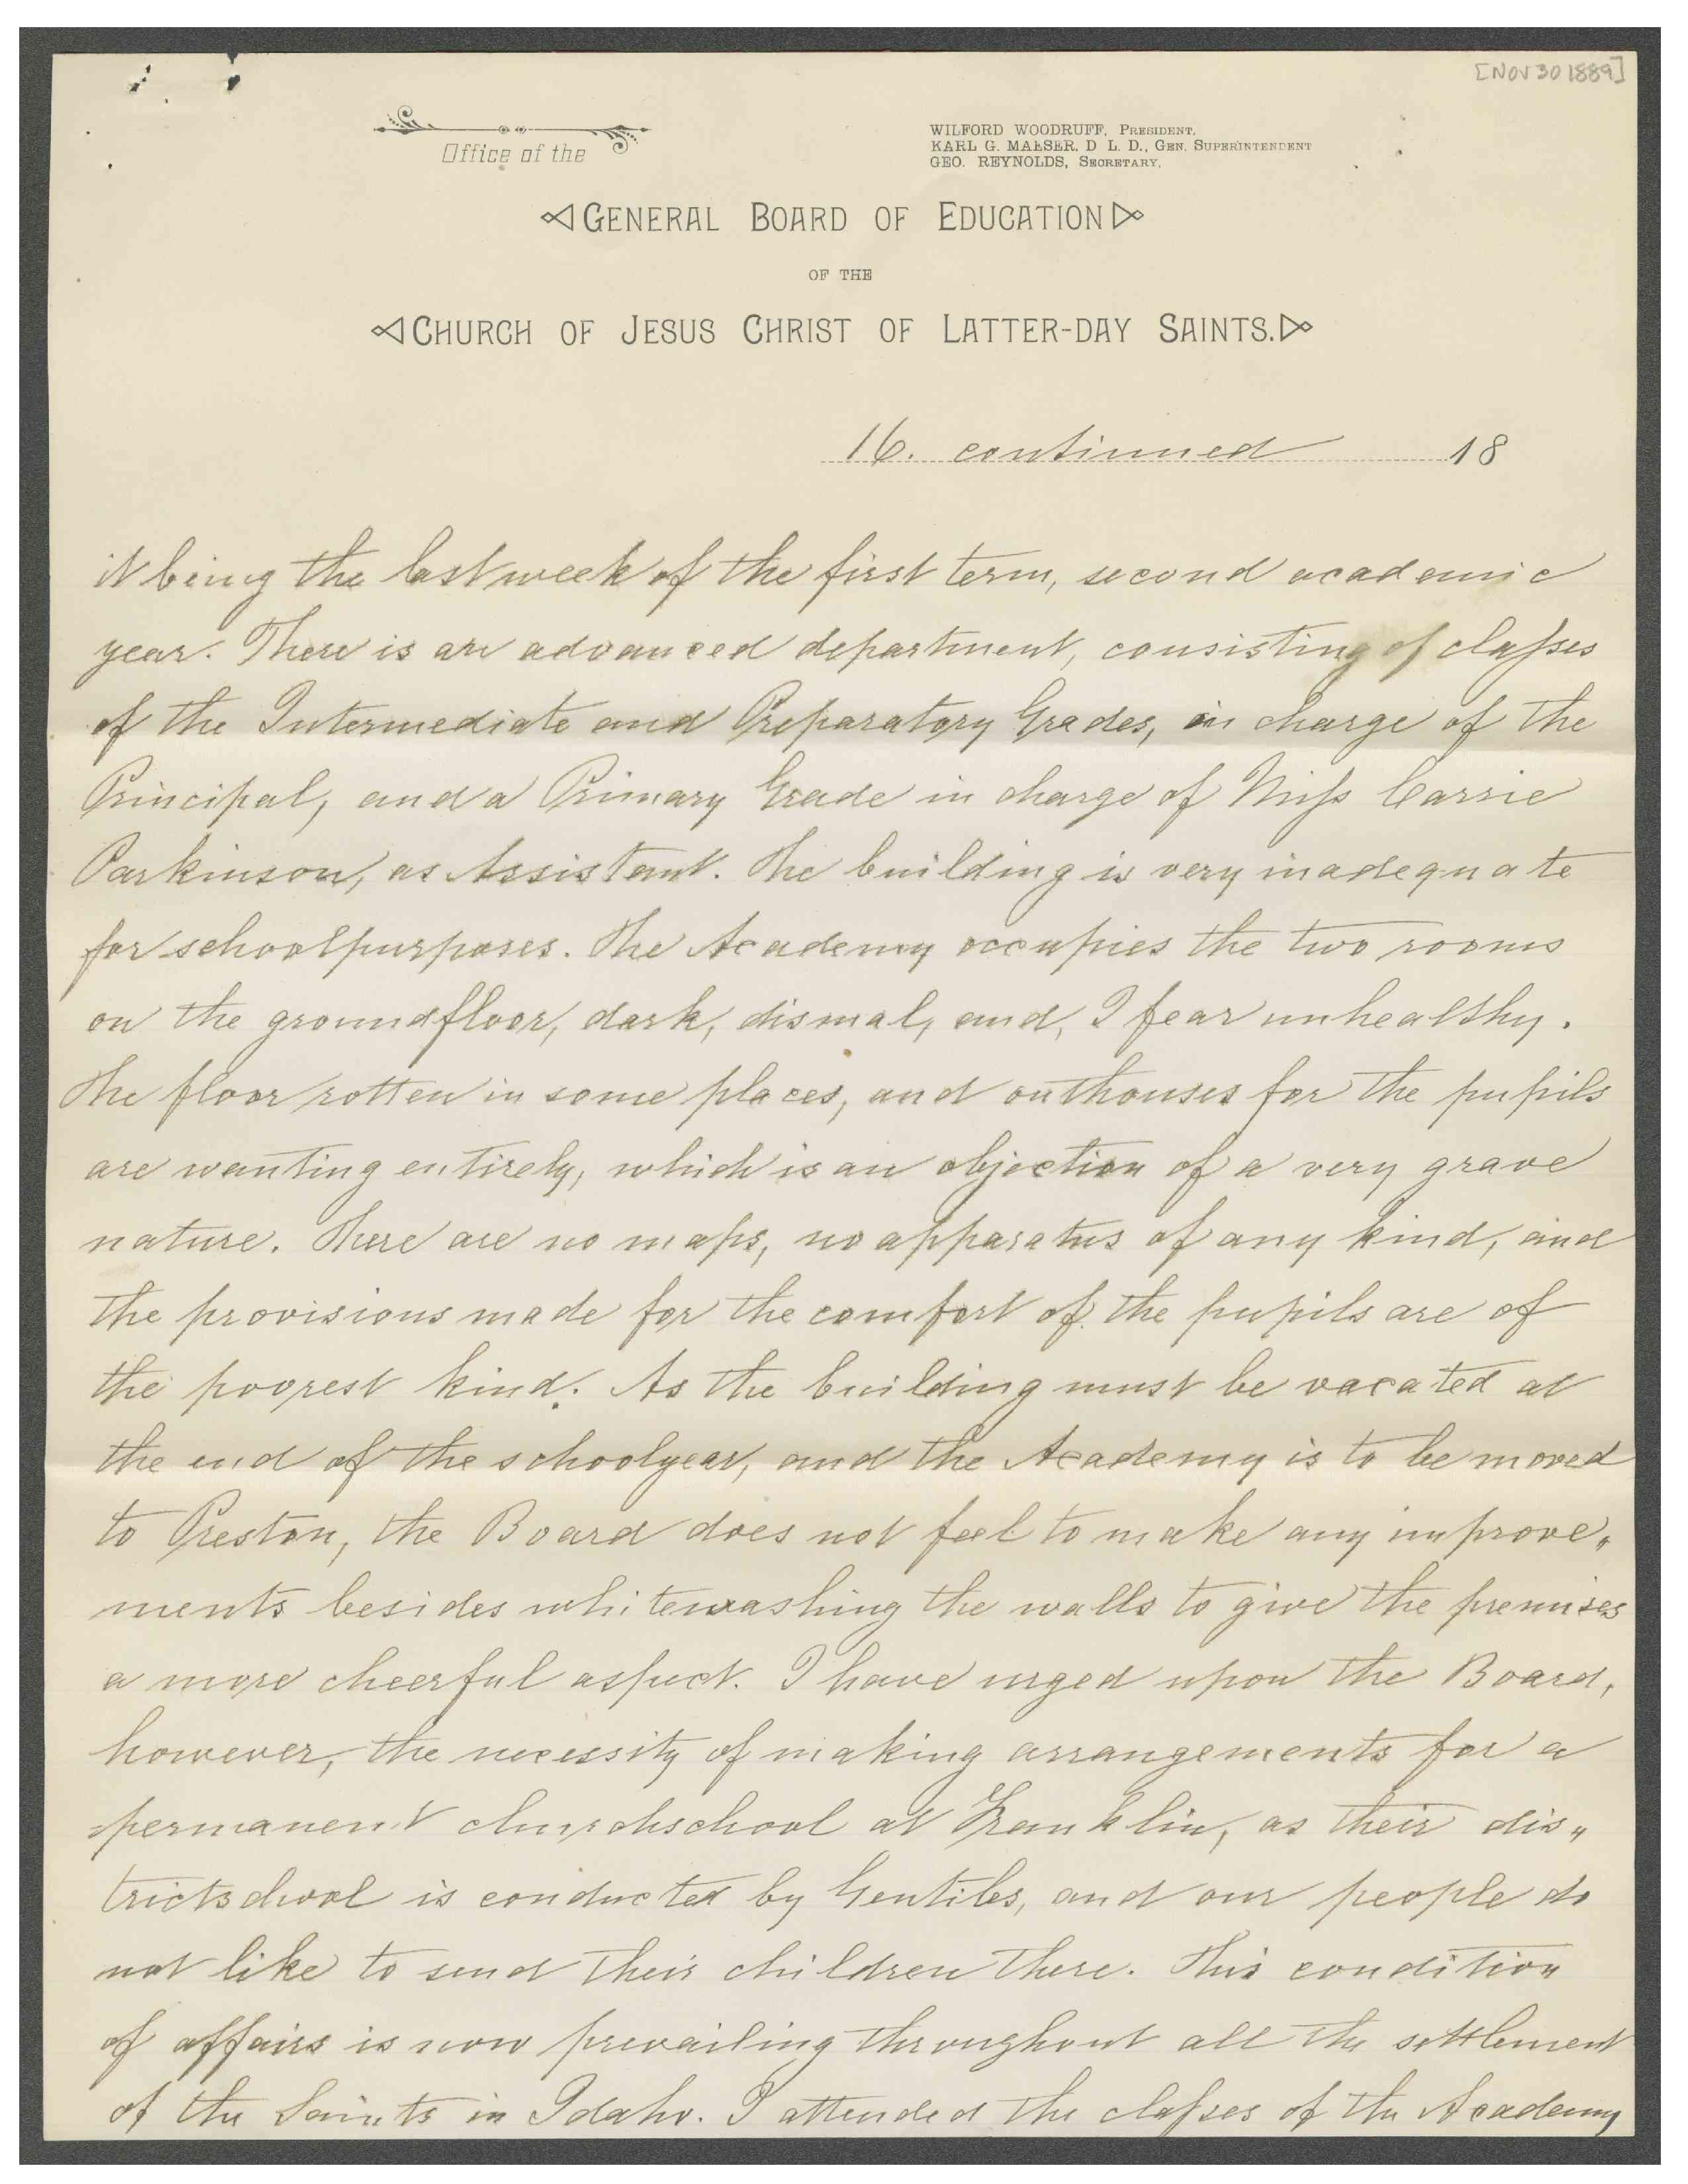 [NOV 30 1889]
Office of the
WILFORD WOODRUFF, PRESIDENT.
KARL G. MAESER, D L. D., GEN. SUPERINTENDENT
GEO. REYNOLDS, SECRETARY.
GENERAL BOARD OF EDUCATION
OF THE
CHURCH OF JESUS CHRIST OF LATTER-DAY SAINTS.
16. continued 18
it being the last week of the first term, second academic
year. There is an advanced department, consisting of classes
of the Intermediate and Preparatory Grades, in charge of the
Principal, and a Primary Grade in charge of Miss Carrie
Parkinson, as Assistant. The building is very inadequate
for schoolpurposes. The Academy occupies the two rooms
on the groundfloor, dark, dismal, and, I fear unhealthy.
The floor rotten in some places, and outhouses for the pupils
are wanting entirely, which is an objection of a very grave
nature. There are no maps, no apparatus of any kind, and
the provisions made for the comfort of the pupils are of
the poorest kind. As the building must be vacated at
the end of the schoolyear, and the Academy is to be moved
to Preston, the Board does not feel to make any improve„
ments besides whitewashing the walls to give the premises
a more cheerful aspect. I have urged upon the Board,
however, the necessity of making arrangements for a
permanent churchschool at Franklin, as their dis„
trictschool is conducted by Gentiles, and our people do
not like to send their children there. This condition
of affairs is now prevailing throughout all the settlement
of the Saints in Idaho. I attended the classes of the Academy